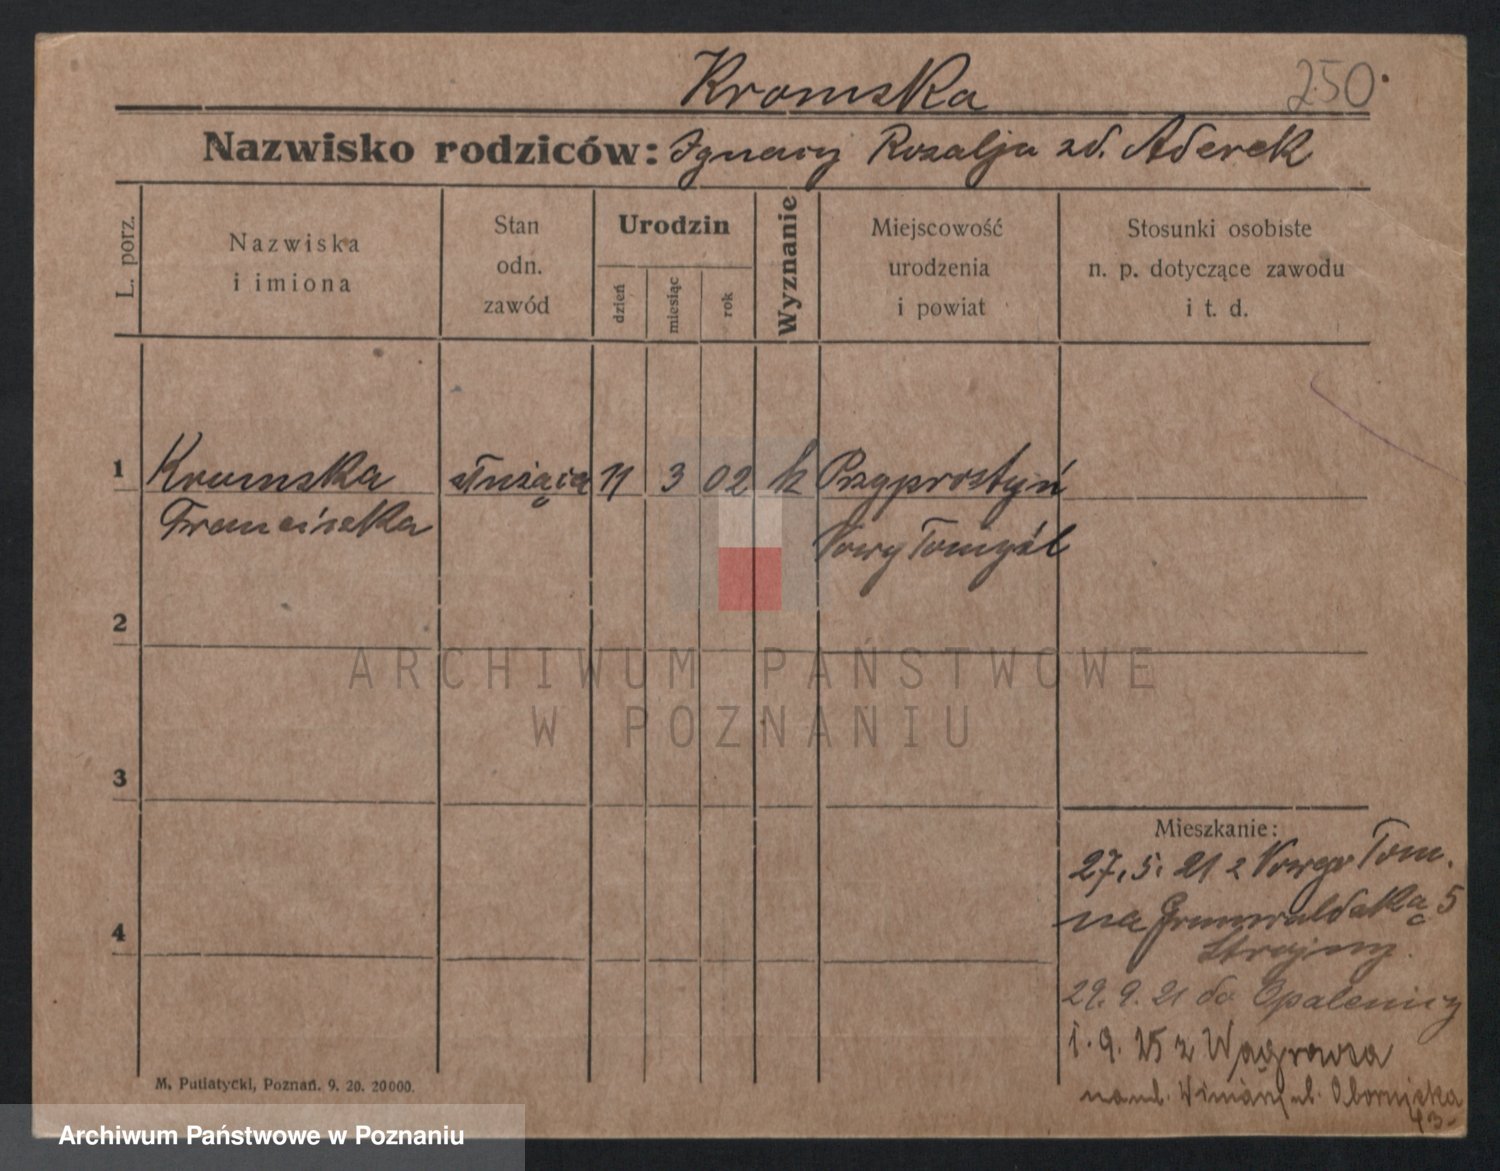 Kromska
250.
Nazwisko rodziców: Ignacy Rozalja zd. Aderek
L. porz.
Nazwiska
i imiona
Stan
odn.
zawód
Urodzin
dzień
miesiąc
rok
Wyznanie
Miejscowość
urodzenia
i powiat
Stosunki osobiste
n. p. dotyczące zawodu
i t. d.
1 Kromska służąca 11 3 02 k Przyprostyń
Franciszka Nowy Tomyśl
2
ARCHIWUM PAŃSTWOWE
W POZNANIU
3
Mieszkanie:
27.5.21 z Nowego Tom.
4
na Grunwaldską 5
29.9.21 do Opalenicy
1.9.25 z Wągrowca
ul. Obornicka
43
M. Putiatycki, Poznań. 9. 20. 20000.
Archiwum Państwowe w Poznaniu